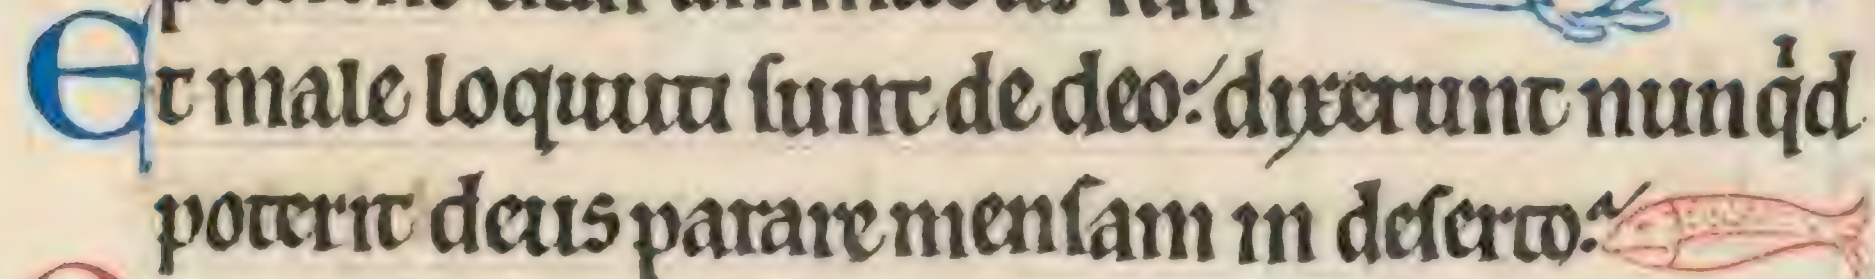 Et male loquuti sunt de deo: dixerunt nunqd
poterit deus parare mensam in deserto: